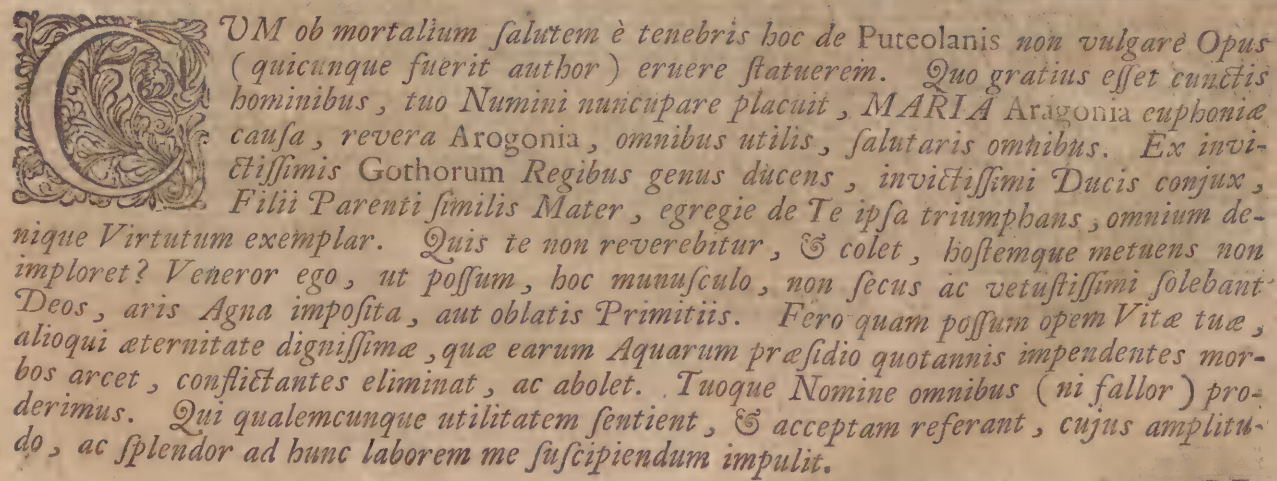 CUM ob mortalium ſalutem è tenebris hoc de Puteolanis non vulgarè Opus
( quicunque fuerit author ) eruere ſtatuerem. Quo gratius eſſet cunctis
hominibus, tuo Numini nuncupare placuit, MARIA Aragonia euphoniæ
cauſa, revera Arogonia, omnibus utilis, ſalutaris omnibus. Ex invi-
ctiſſimis Gothorum Regibus genus ducens, invictiſſimi Ducis conjux,
Filii Parenti ſimilis Mater, egregie de Te ipſa triumphans, omnium de-
nique Virtutum exemplar. Quis te non reverebitur, & colet, hoſtemque metuens non
imploret? Veneror ego, ut poſſum, hoc munuſculo, non ſecus ac vetuſtiſſimi ſolebant
Deos, aris Agna impoſita, aut oblatis Primitiis. Fero quam poſſum opem Vitæ tuæ,
alioqui æternitate digniſſimæ, quæ earum Aquarum præſidio quotannis impendentes mor-
bos arcet, conflictantes eliminat, ac abolet. Tuoque Nomine omnibus ( ni fallor ) pro-
derimus. Qui qualemcunque utilitatem ſentient, & acceptam referant, cujus amplitu-
do, ac ſplendor ad hunc laborem me ſuſcipiendum impulit.